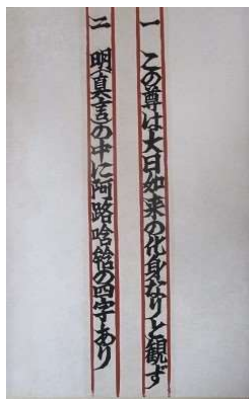 一 この尊は大日如来の化身なりと観ず
二 明(真言)の中に阿路唅館の四字あり